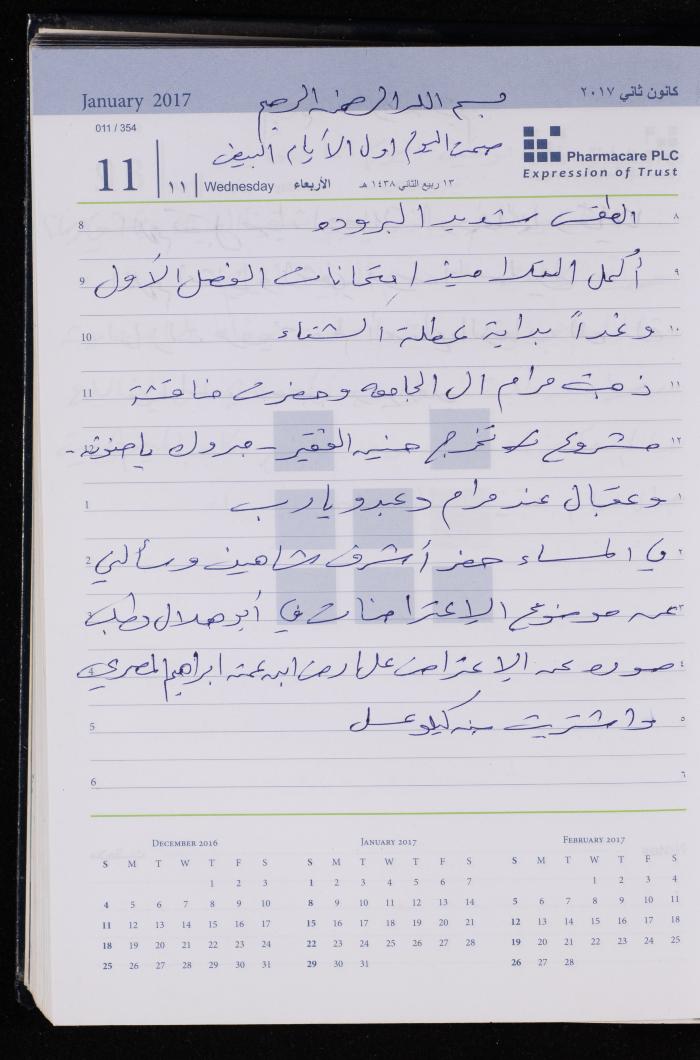 بسم الله الرحمن الرحيم
January 2017
كانون ثاني ٢٠١٧
011 / 354
صمت اليوم اول الأيام البيض
11
١١
Wednesday
الأربعاء
١٣ ربيع الثاني ١٤٣٨ هـ
Pharmacare PLC
Expression of Trust
8 الطقس شديد البروده ٨
9 أكمل التلاميذ امتحانات الفصل الأول ٩
10 وغداً بداية عطلة الشتاء ١٠
11 ذهبت مرام الى الجامعه وحضرت مناقشة ١١
12 مشروع تخرج حنين الفقير - مبروك يا حنونه - ١٢
1 وعقبال عند مرام وعبدو يا رب ١
2 في المساء حضر أشرف شاهين وسألني ٢
3 عن موضوع الإعتراضات في أبو هلال وطلب ٣
4 صوره عن الإعتراض على ارض ابن عمته ابراهيم المصري ٤
5 واشتريت منه كيلو عسل ٥
6 ٦
DECEMBER 2016
S M T W T F S
1 2 3
4 5 6 7 8 9 10
11 12 13 14 15 16 17
18 19 20 21 22 23 24
25 26 27 28 29 30 31
JANUARY 2017
S M T W T F S
1 2 3 4 5 6 7
8 9 10 11 12 13 14
15 16 17 18 19 20 21
22 23 24 25 26 27 28
29 30 31
FEBRUARY 2017
S M T W T F S
1 2 3 4
5 6 7 8 9 10 11
12 13 14 15 16 17 18
19 20 21 22 23 24 25
26 27 28